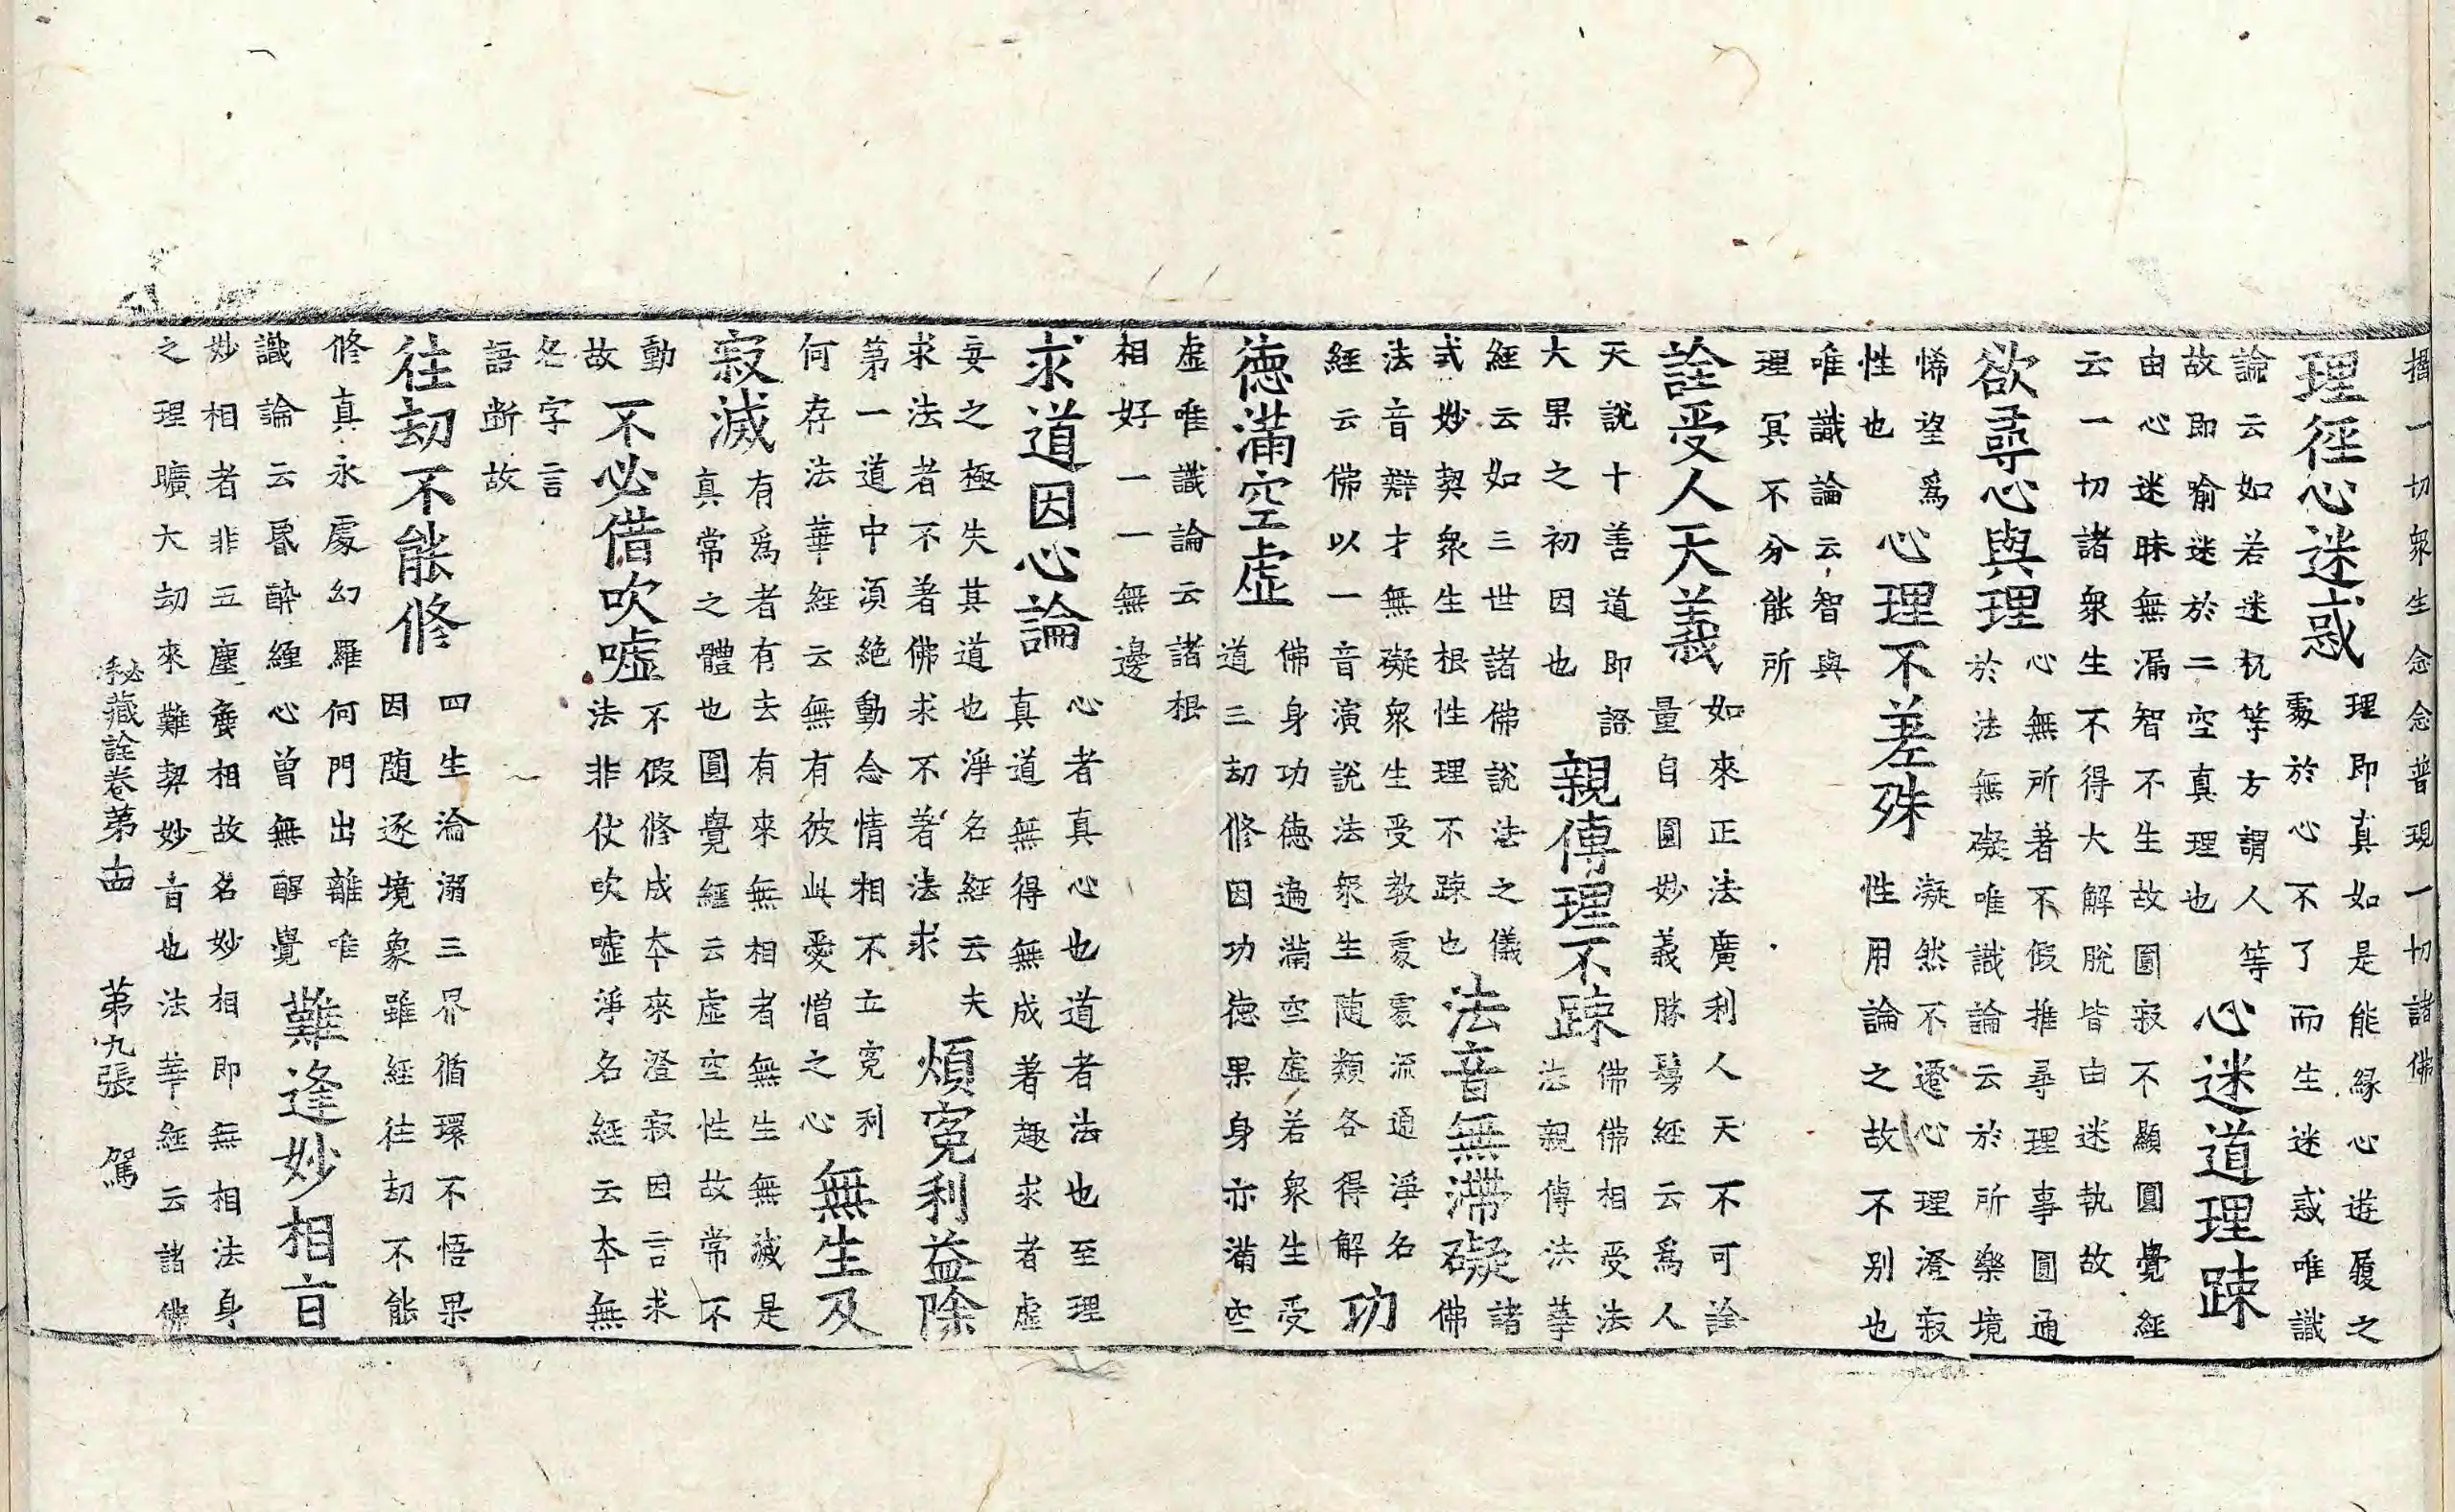 攝一切衆生念念普現一切諸佛
理徑心迷惑
理即真如是能緣心遊履之
處於心不了而生迷惑唯識
論云如若迷杌等方謂人等
故即喻迷於二空真理也
心迷道理踈
由心迷昧無漏智不生故圓寂不顯圓覺經
云一切諸衆生不得大解脫皆由迷執故
欲尋心與理
心無所著不假推尋理事圓通
於法無礙唯識論云於所樂境
悕望爲
性也
心理不差殊
凝然不遷心理澄寂
性用論之故不别也
唯識論云智與
理冥不分能所
詮受人天義
如來正法廣利人天不可詮
量自圓妙義勝鬘經云爲人
天說十善道即證
大果之初因也
親傳理不踈
佛佛相受法
法親傳法華
經云如三世諸佛說法之儀
式妙契衆生根性理不踈也
法音無滯礙
諸
佛
法音辯才無礙衆生受教處處流通淨名
經云佛以一音演說法衆生随類各得解
功
德滿空虛
佛身功德遍滿空虛若衆生受
道三劫修因功德果身亦滿空
虛唯識論云諸根
相好一一無邊
求道因心論
心者真心也道者法也至理
真道無得無成著趣求者虛
妄之極失其道也淨名經云夫
求法者不著佛求不著法求
煩寃利益除
第一道中湏絶動念情相不立寃利
何存法華經云無有彼此愛憎之心
無生及
寂滅
有爲者有去有來無相者無生無滅是
真常之體也圓覺經云虛空性故常不
動
故
不必借吹噓
不假修成本來澄寂因言求
法非仗吹噓淨名經云本無
名字言
語断故
往刧不能修
四生淪溺三界循環不悟果
因随逐境象雖經往刧不能
修真永處幻羅何門出離唯
識論云昬醉纏心曾無醒覺
難逢妙相言
妙相者非五塵麁相故名妙相即無相法身
之理曠大刧來難契妙旨也法華經云諸佛
秘藏詮卷第十四　第九張　駕